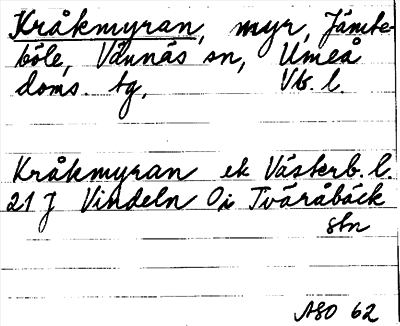 Kråkmyran, myr, Jämte-
böle, Vännäs sn, Umeå
doms. tg, Vb. l.
Kråkmyran ek Västerb. l.
21 J Vindeln Öi Tväråbäck
stn
ASO 62